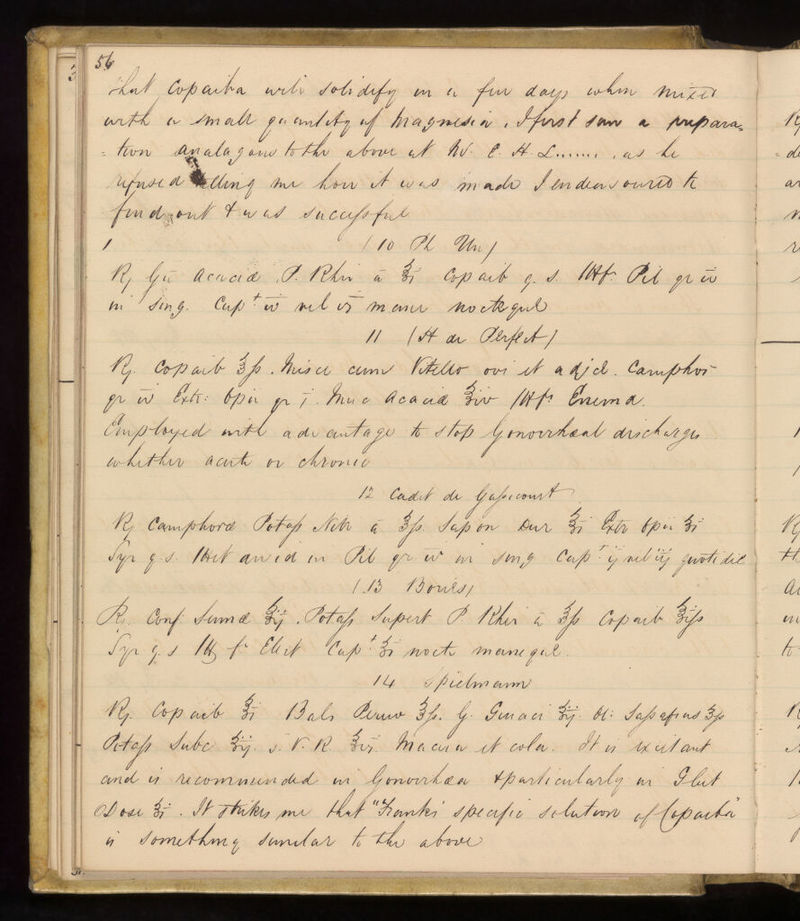 56
that Copaiba will solidify in a few days when mixed
with a small quantity of Magnesia. I first saw a prepara=
=tion analagous to the above at W. C. H. L....... , as he
refused telling me how it was made I endeavoured to
find out & was successful
1 (10 Ph Un)
R Gu Acaciæ P. Rhei a ʒi Copaib q. s. ft Pil gr iv
in sing. Capt iv vel vi mane nocteque
11 (St de Perfect)
R. Copaib ʒſs. Misce cum Vitello ovi et adjct. Camphor
gr iv Extr: Opii gr i. Muc Acaciæ ℥iv ft Enema.
Employed with advantage to stop Gonorrhœal discharges
whether acute or chronic
12 Cadet de Gassicourt
R Camphoræ Potaſs Nitr a ʒſs Sapon Dur ʒi Extr Opii ʒi
Syr q.s. in Pil gr iv in sing Capt ij vel iij quotidie
(13 Bories)
R. Conf: Sennæ ℥ij. Potaſs Supert P Rhei a ℥ſs Copaib ʒijſs
Syr q.s ft Elect Capt ʒi nocte maneque.
14 Spielmann
R Copaib ℥i Bals Peruv ℥ſs. G. Guaiaci ʒij. Ol: Saſsafras ʒſs
Potaſs Subc ʒij. s. V. R. ℥vi Macera et cola. It is excitant
and is recommended in Gonorrhœa & particularly in Gleet
Dose ʒi. It strikes me that "Franks' specific solution of Copaiba"
is something similar to the above